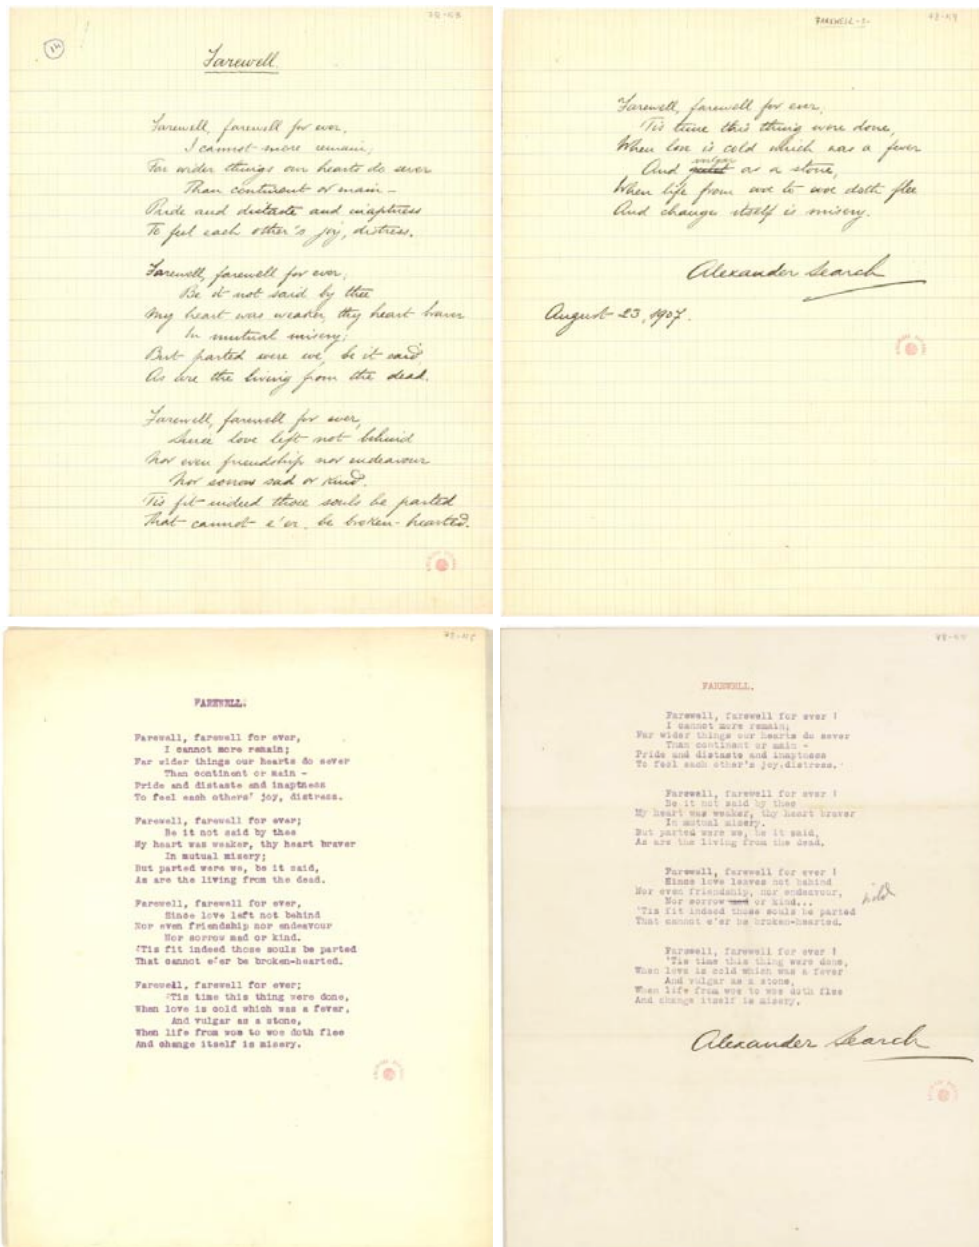 78-48
14
Farewell
Farewell, farewell for ever,
I cannot more remain;
Far wider things our hearts do sever
Than continent or main –
Pride and distaste and inaptness
To feel each other's joy, distress.
Farewell, farewell for ever,
Be it not said by thee
My heart was weaker, thy heart braver
In mutual misery;
But parted were we, be it said
As are the living from the dead.
Farewell, farewell for ever,
Since love left not behind
Nor even friendship nor endeavour
Nor sorrow sad or kind.
'Tis fit indeed those souls be parted
That cannot e'er be broken-hearted.
FAREWELL-2-
Farewell, farewell for ever,
'Tis time this thing were done,
When love is cold which was a fever
vulgar
And as a stone,
When life from woe to woe doth flee
And change itself is misery.
Alexander Search
August 23, 1907.
FAREWELL.
Farewell, farewell for ever,
I cannot more remain;
Far wider things our hearts do sever
Than continent or main -
Pride and distaste and inaptness
To feel each others' joy, distress.
Farewell, farewell for ever;
Be it not said by thee
My heart was weaker, thy heart braver
In mutual misery;
But parted were we, be it said,
As are the living from the dead.
Farewell, farewell for ever,
Since love left not behind
Nor even friendship nor endeavour
Nor sorrow mad or kind.
'Tis fit indeed those souls be parted
That cannot e'er be broken-hearted.
Farewell, farewell for ever;
'Tis time this thing were done,
When love is cold which was a fever,
And vulgar as a stone,
When life from woe to woe doth flee
And change itself is misery.
FAREWELL.
Farewell, farewell for ever !
I cannot more remain;
Far wider things our hearts do sever
Than continent or main -
Pride and distaste and inaptness
To feel each other's joy,distress.
Farewell, farewell for ever !
Be it not said by thee
My heart was weaker, thy heart braver
In mutual misery.
But parted were we, be it said,
As are the living from the dead.
Farewell, farewell for ever !
Since love leaves not behind
Nor even friendship, nor endeavour,
Nor sorrow mad or kind...
'Tis fit indeed those souls be parted
That cannot e'er be broken-hearted.
Farewell, farewell for ever !
'Tis time this thing were done,
When love is cold which was a fever
And vulgar as a stone,
When life from woe to woe doth flee
And change itself is misery.
Alexander Search